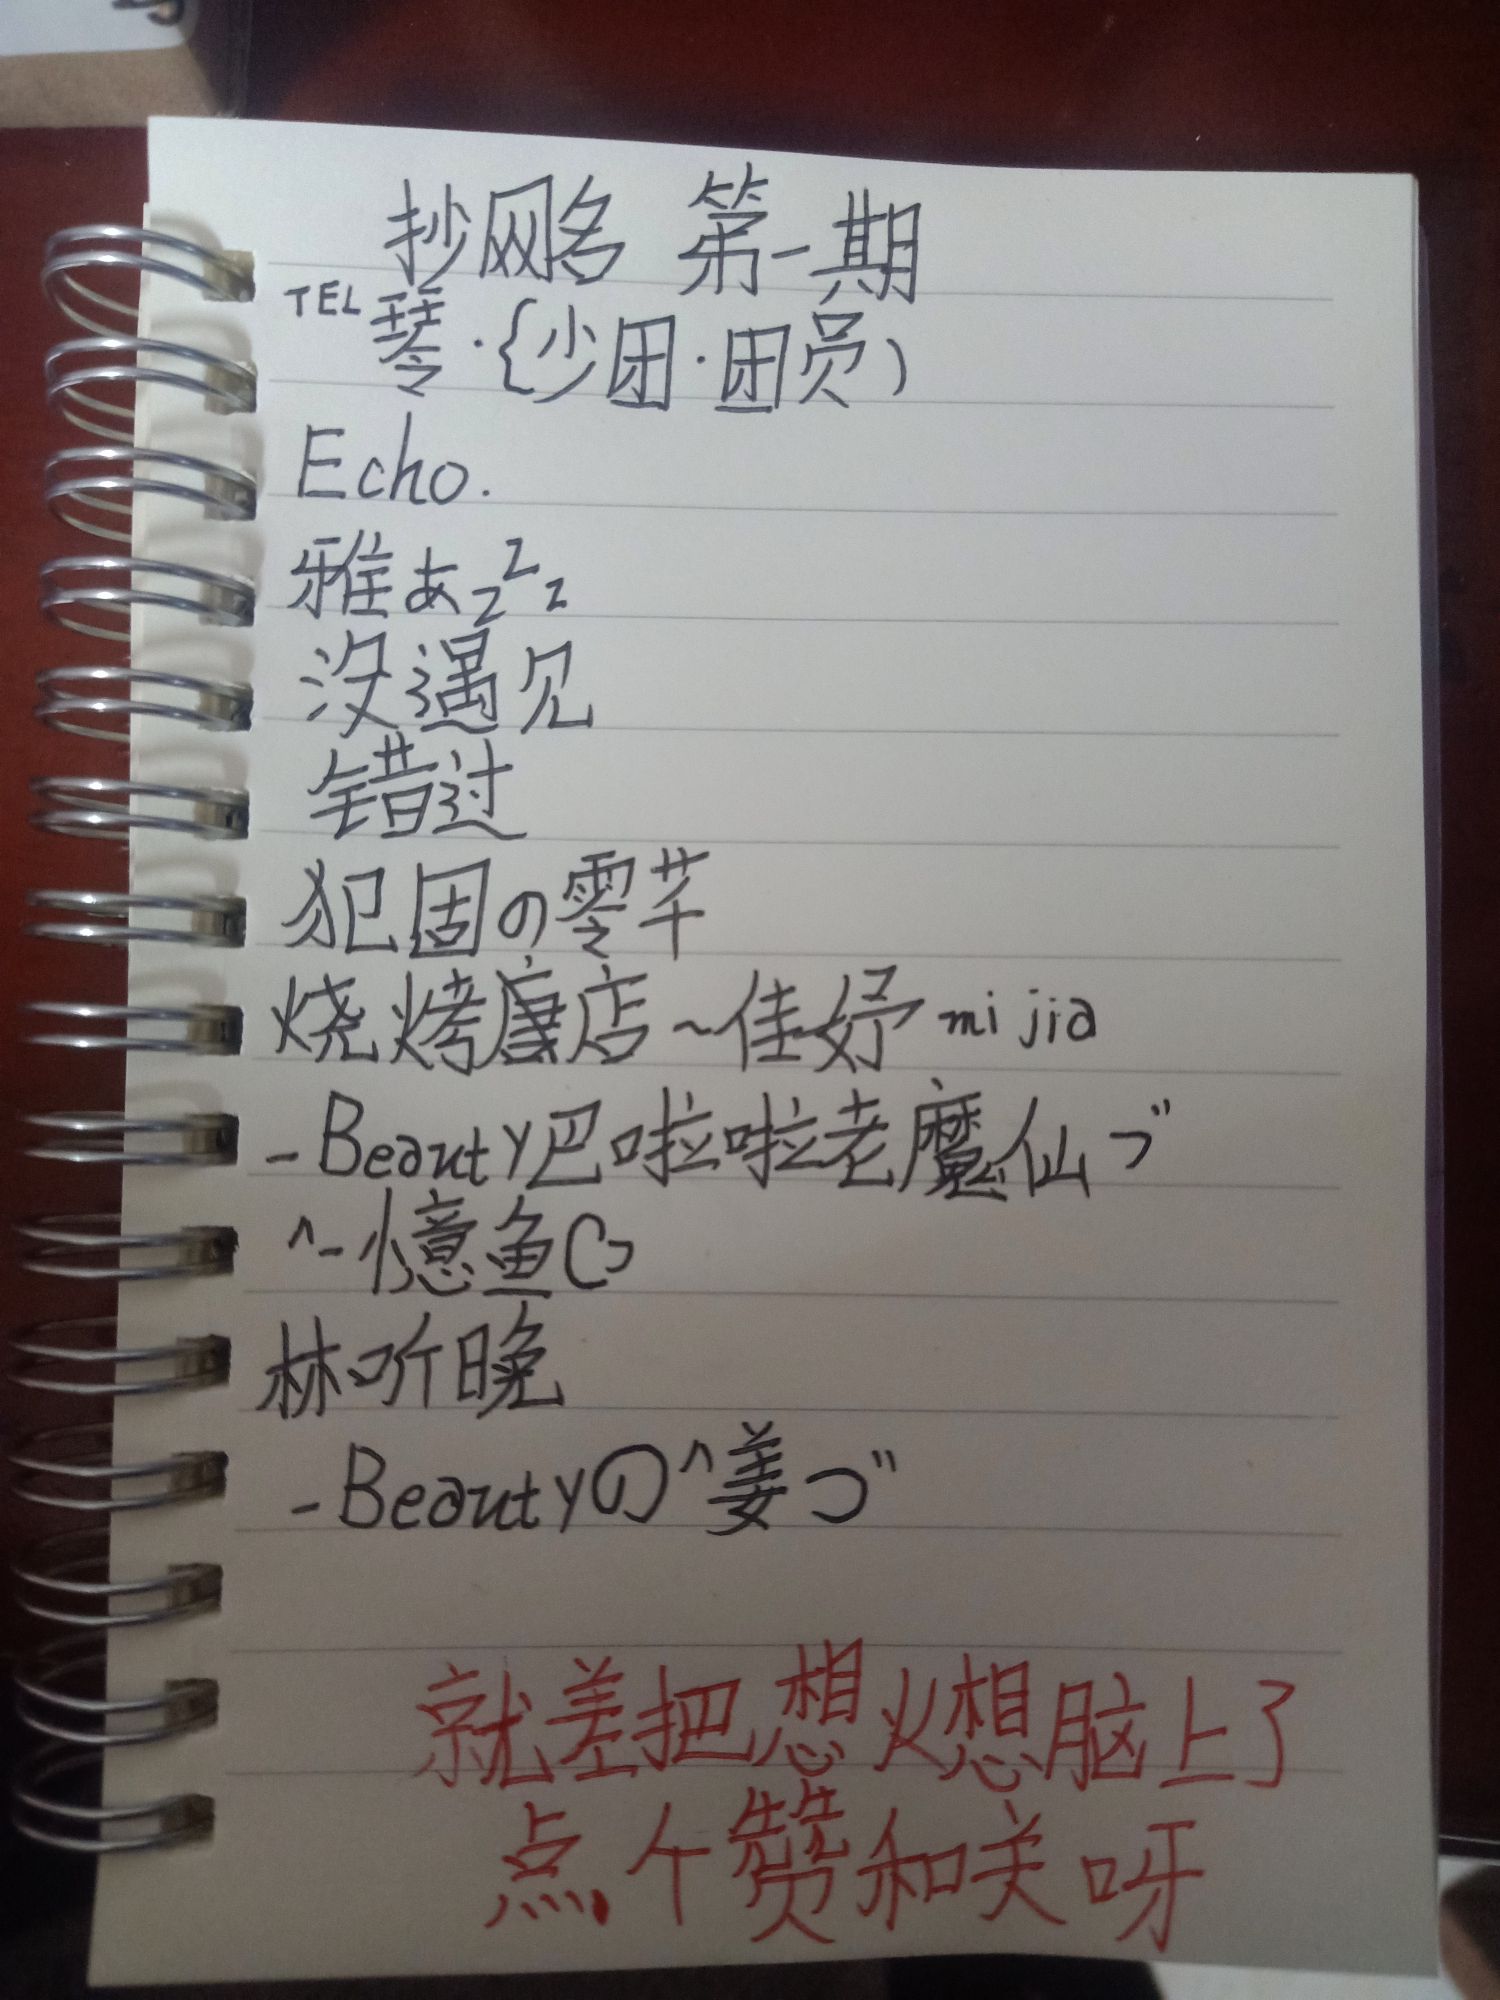 抄网名 第一期
TEL 琴·{少团·团员)
Echo.
雅ぁzZz
没遇见
错过
犯困の零芊
烧烤店~佳妤mijia
-Beauty巴啦啦老魔仙づ
^-憶鱼
林听晚
-Beautyの^姜づ
就差把想火想脑上了
点个赞和关呀